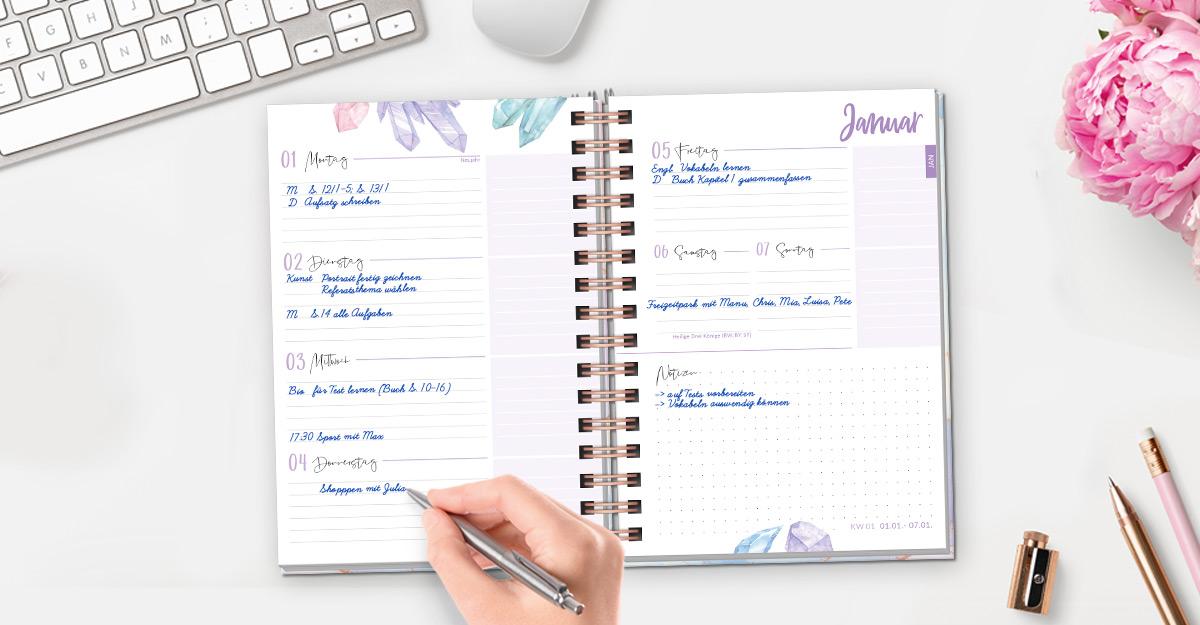 F
G
H
J
K
L
C
V
B
N
M
01 Montag
Neujahr
M S. 12/1-5; S. 13/1
D Aufsatz schreiben
02 Dienstag
Kunst Portrait fertig zeichnen
Referatsthema wählen
M S. 14 alle Aufgaben
03 Mittwoch
Bio für Test lernen (Buch S. 10-16)
17.30 Sport mit Max
04 Donnerstag
Shopppen mit Julia
Januar
JAN
05 Freitag
Engl. Vokabeln lernen
D Buch Kapitel 1 zusammenfassen
06 Samstag 07 Sonntag
Freizeitpark mit Manu, Chris, Mia, Luisa, Pete
Heilige Drei Könige (BW, BY, ST)
Notizen
-> auf Tests vorbereiten
-> Vokabeln auswendig können
KW 01 01.01.- 07.01.